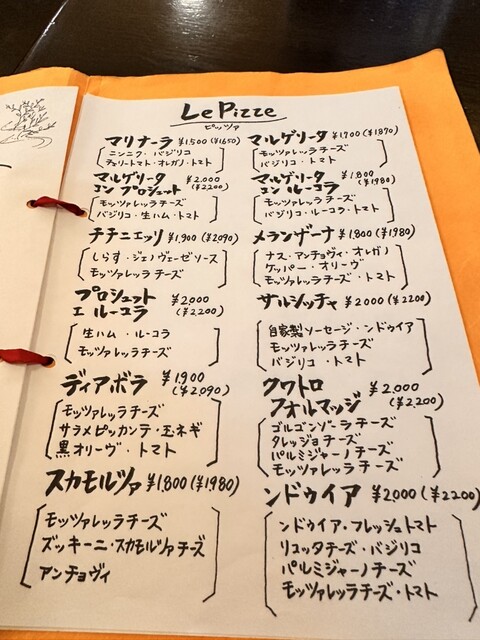 Le Pizze
ピッツァ
マリナーラ ¥1,500 (¥1650)
ニンニク・バジリコ
チェリートマト・オレガノ・トマト
マルゲリータ
コン プロシュット ¥2,000 (¥2200)
モッツァレッラチーズ
バジリコ・生ハム・トマト
チチニエッリ ¥1,900 (¥2090)
しらす・ジェノヴェーゼソース
モッツァレッラチーズ
プロシュット
エ ルーコラ ¥2,000 (¥2200)
生ハム・ルーコラ
モッツァレッラチーズ
ディアボラ ¥1,900 (¥2,090)
モッツァレッラチーズ
サラメピッカンテ・玉ネギ
黒オリーヴ・トマト
スカモルツァ ¥1,800 (¥1980)
モッツァレッラチーズ
ズッキーニ・スカモルツァチーズ
アンチョヴィ
マルゲリータ ¥1,700 (¥1870)
モッツァレッラチーズ
バジリコ・トマト
マルゲリータ
コン ルーコラ ¥1,800 (¥1980)
モッツァレッラチーズ
バジリコ・ルーコラ・トマト
メランザーナ ¥1,800 (¥1980)
ナス・アンチョヴィ・オレガノ
ケッパー・オリーヴ
モッツァレッラチーズ・トマト
サルシッチャ ¥2000 (¥2200)
自家製ソーセージ・ンドゥイア
モッツァレッラチーズ
バジリコ・トマト
クワトロ
フォルマッジ ¥2,000 (¥2,200)
ゴルゴンゾーラチーズ
タレッジョチーズ
パルミジャーノチーズ
モッツァレッラチーズ
ンドゥイア ¥2,000 (¥2200)
ンドゥイア・フレッシュトマト
リコッタチーズ・バジリコ
パルミジャーノチーズ
モッツァレッラチーズ・トマト